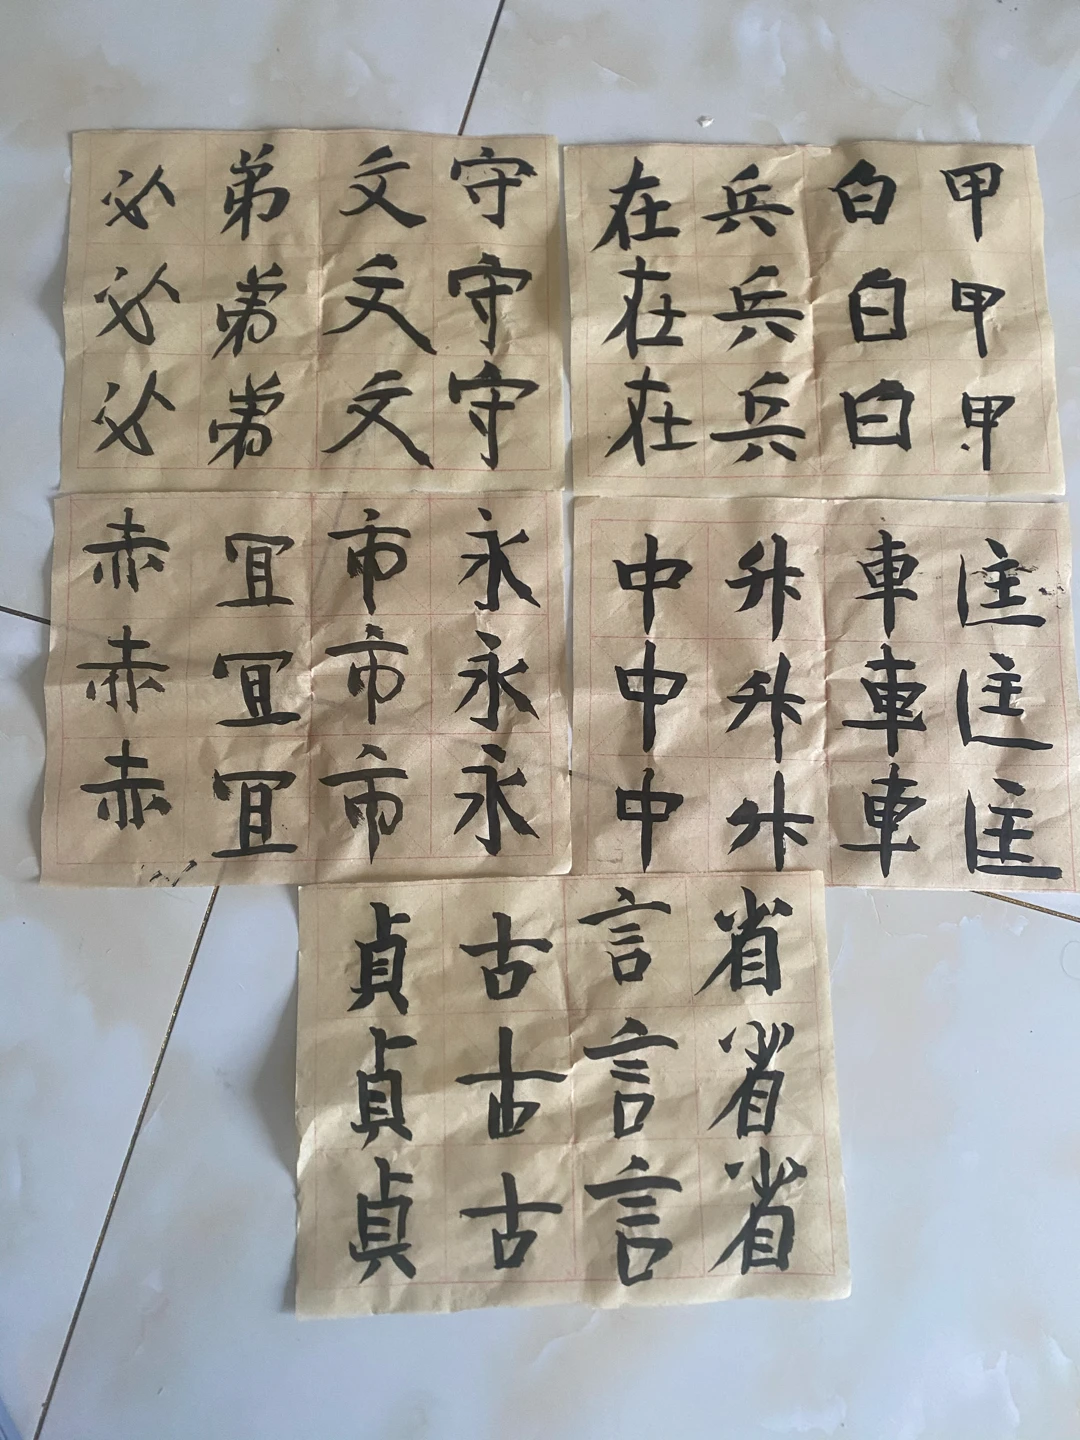 必弟文守
必弟文守
必弟文守
在兵白甲
在兵白甲
在兵白甲
赤冝市永
赤冝市永
赤冝市永
中升車匡
中升車匡
中升車匡
貞古言省
貞古言省
貞古言省